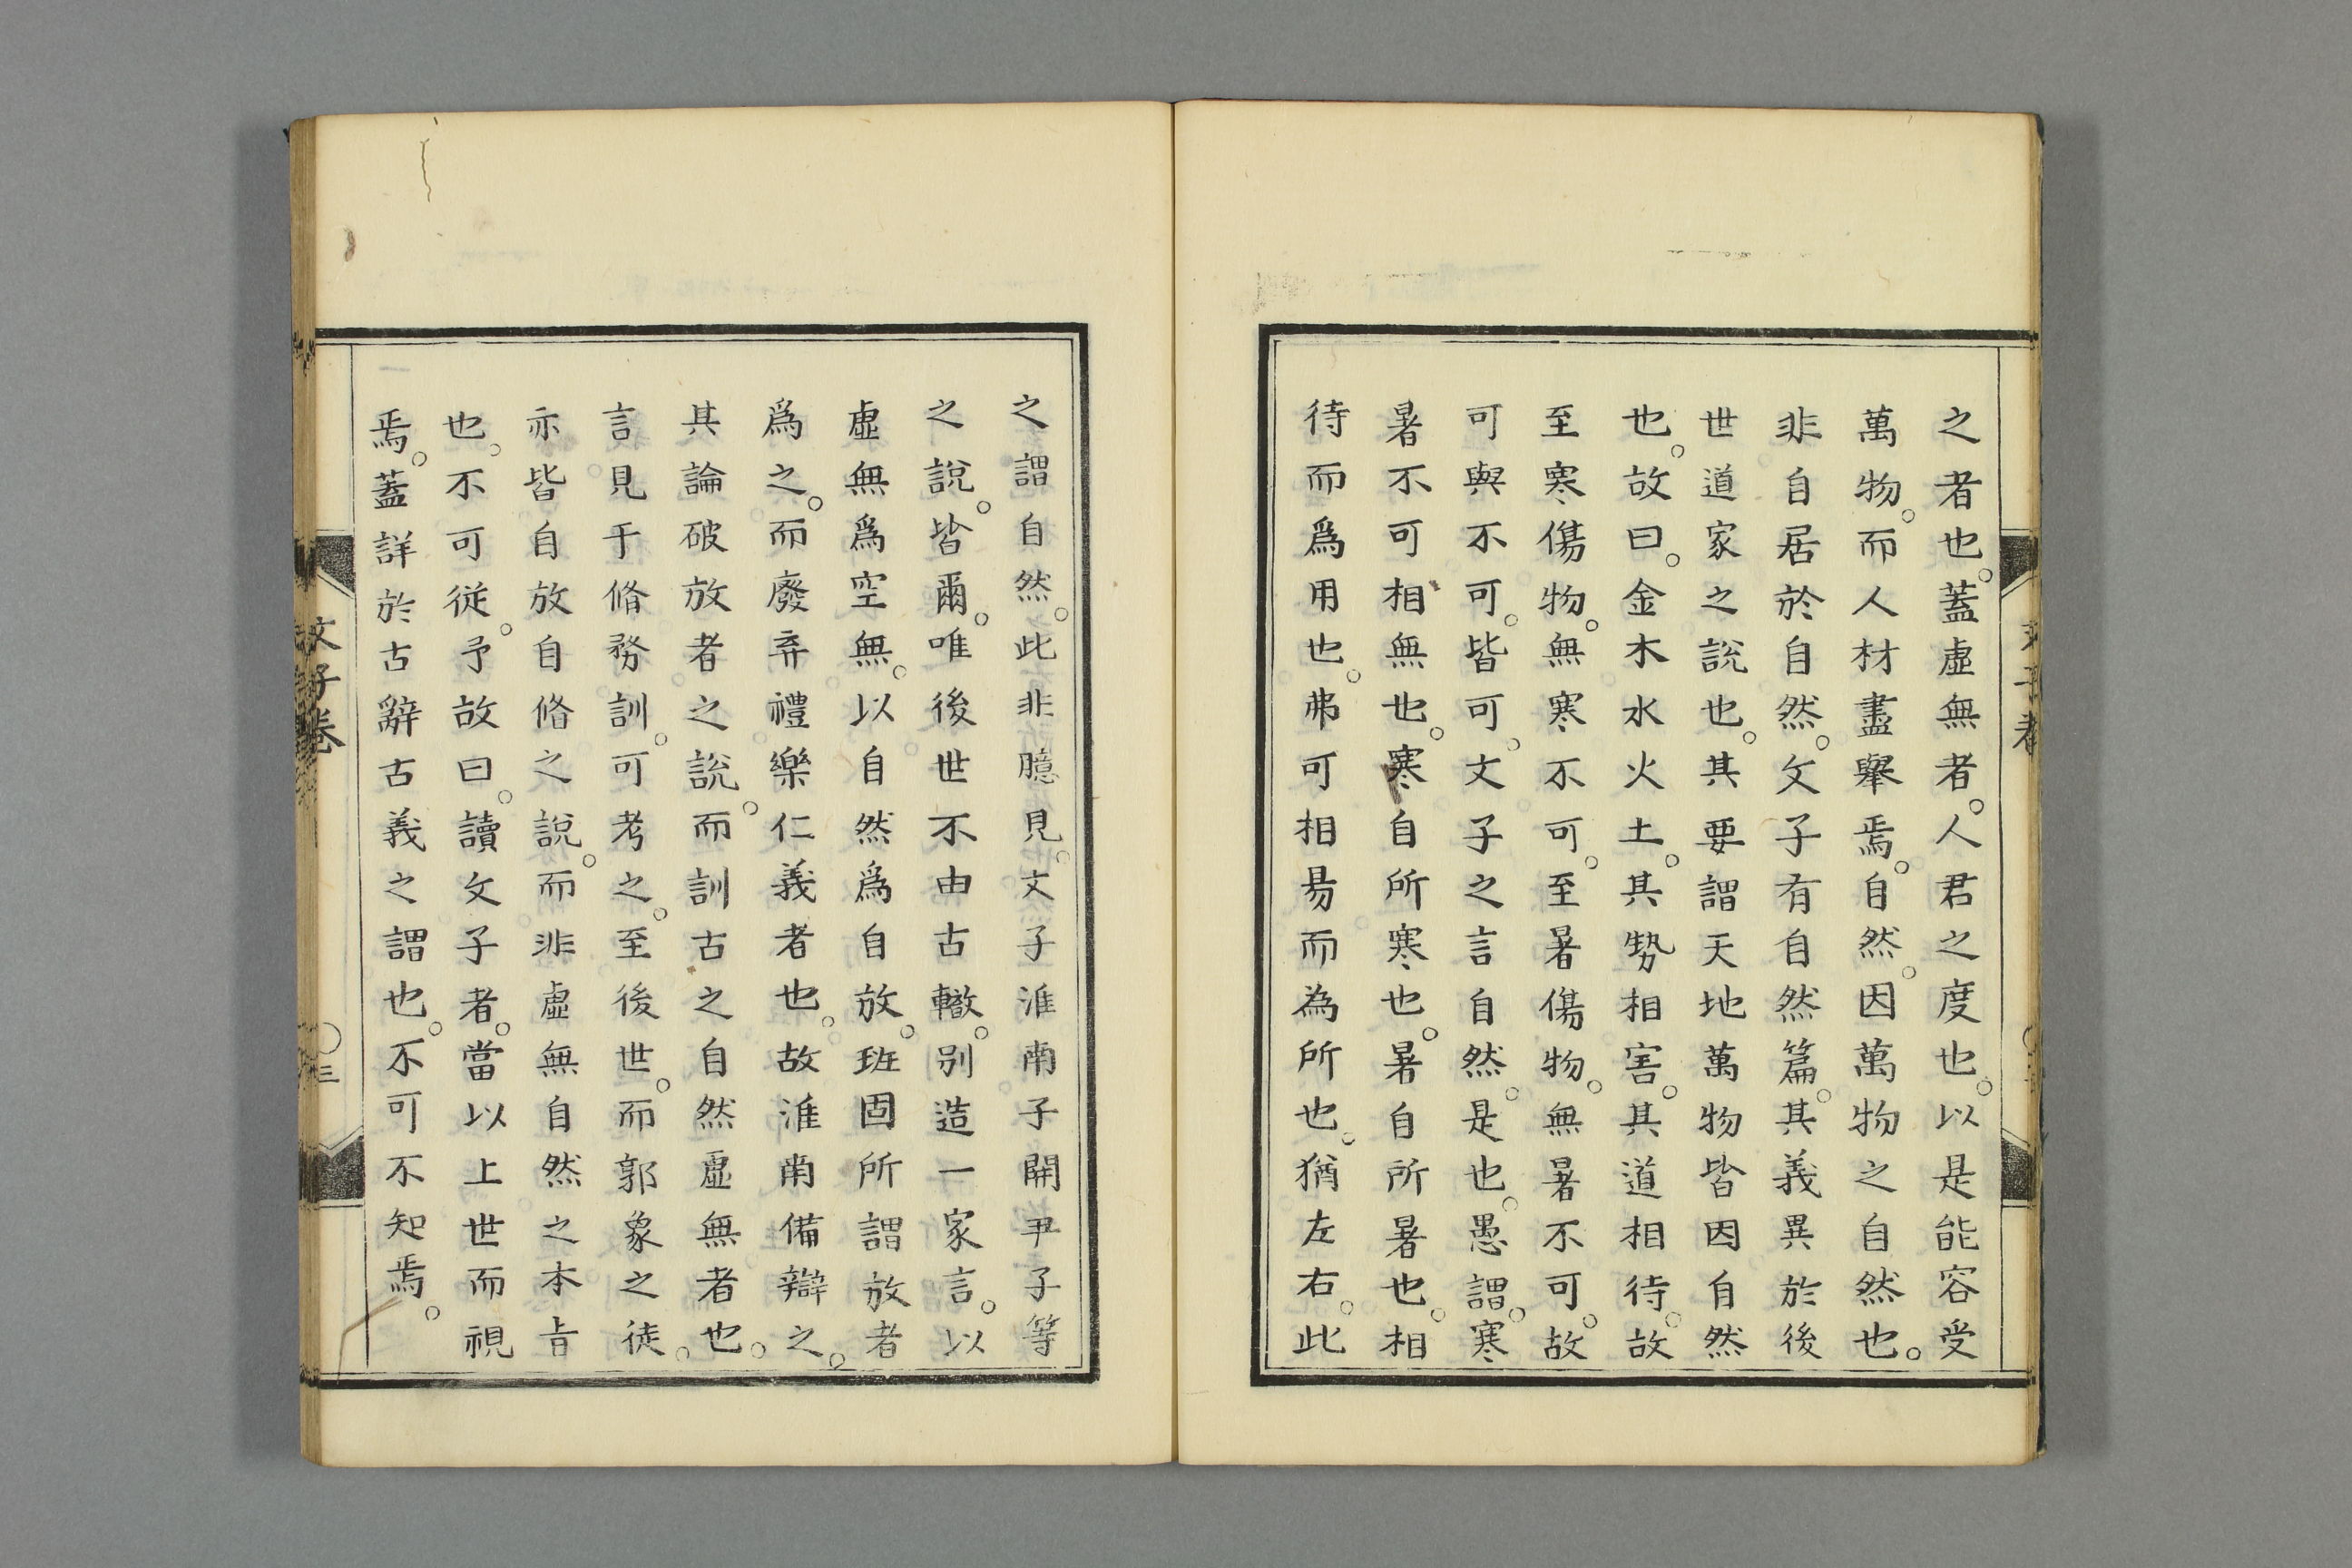 之者也。蓋虛無者。人君之度也。以是能容受
萬物。而人材盡舉焉。自然。因萬物之自然也。
非自居於自然。文子有自然篇。其義異於後
世道家之說也。其要謂天地萬物皆因自然
也。故曰。金木水火土。其勢相害。其道相待。故
至寒傷物。無寒不可。至暑傷物。無暑不可。故
可與不可。皆可。文子之言自然。是也。愚謂。寒
暑不可相無也。寒自所寒也。暑自所暑也。相
待而爲用也。弗可相易而為所也。猶左右。此
之謂自然。此非臆見。文子淮南子關尹子等
之說。皆爾。唯後世不由古轍。別造一家言。以
虛無爲空無。以自然爲自放。班固所謂放者
爲之。而廢弃禮樂仁義者也。故淮南備辯之。
其論破放者之說。而訓古之自然虛無者也。
言見于脩務訓。可考之。至後世。而郭象之徒。
亦皆自放自脩之說。而非虛無自然之本旨
也。不可從。予故曰。讀文子者。當以上世而視
焉。蓋詳於古辭古義之謂也。不可不知焉。
文子卷
三